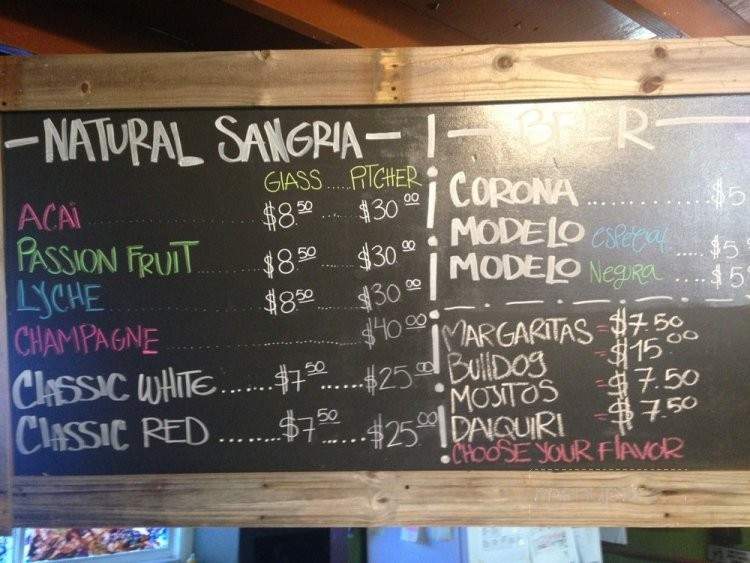 - NATURAL SANGRIA -
GLASS.....PITCHER
ACAI ..... $8.50 ... $30.00
PASSION FRUIT ..... $8.50 ... $30.00
LYCHE ..... $8.50 ... $30.00
CHAMPAGNE ..... $40.00
CLASSIC WHITE....... $7.50......$25.00
CLASSIC RED ........ $7.50.....$25.00
- BEER -
CORONA ........... $5
MODELO especial .... $5
MODELO Negura .... $5
MARGARITAS = $7.50
BUllDOg = $15.00
MOJITOS = $7.50
DAIQUIRI = $7.50
CHOOSE YOUR FlAVOR